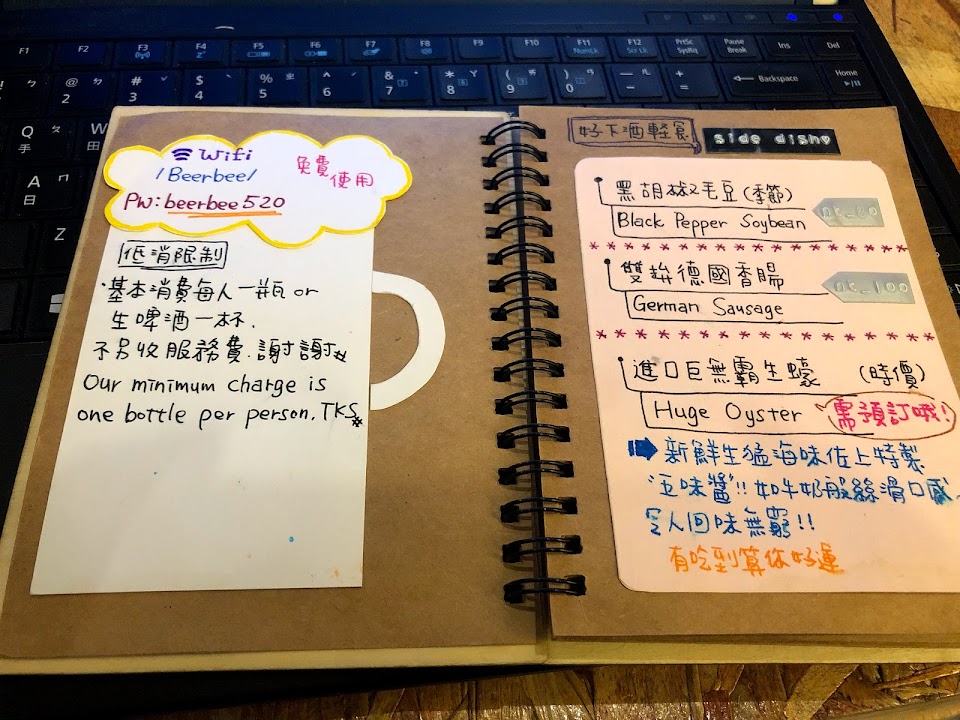 F1 F2 F3 F4 F5 F6 F7 F8 F9 F10 F11 F12 PrtSc Pause Ins Del
NumLk Scr Lk SysRq Break
@ # $ % ^ & * ( ) — +
2 3 4 5 6 7 8 9 0 - = Backspace Home
Q 手 W 田
A 日
Z
Wifi
/Beerbee/
PW: beerbee520
免費
使用
低消限制
·基本消費每人一瓶 or
生啤酒一杯.
不另收服務費.謝謝
Our minimum charge is
one bottle per person. TKS
好下酒輕食
side dishy
黑胡椒毛豆(季節)
Black Pepper Soybean
雙拼德國香腸
nt_100
German Sausage
進口巨無霸生蠔 (時價)
Huge Oyster 需預訂哦!
新鮮生猛海味佐上特製
五味醬!! 如牛奶般絲滑口感
令人回味無窮!!
有吃到算你好運